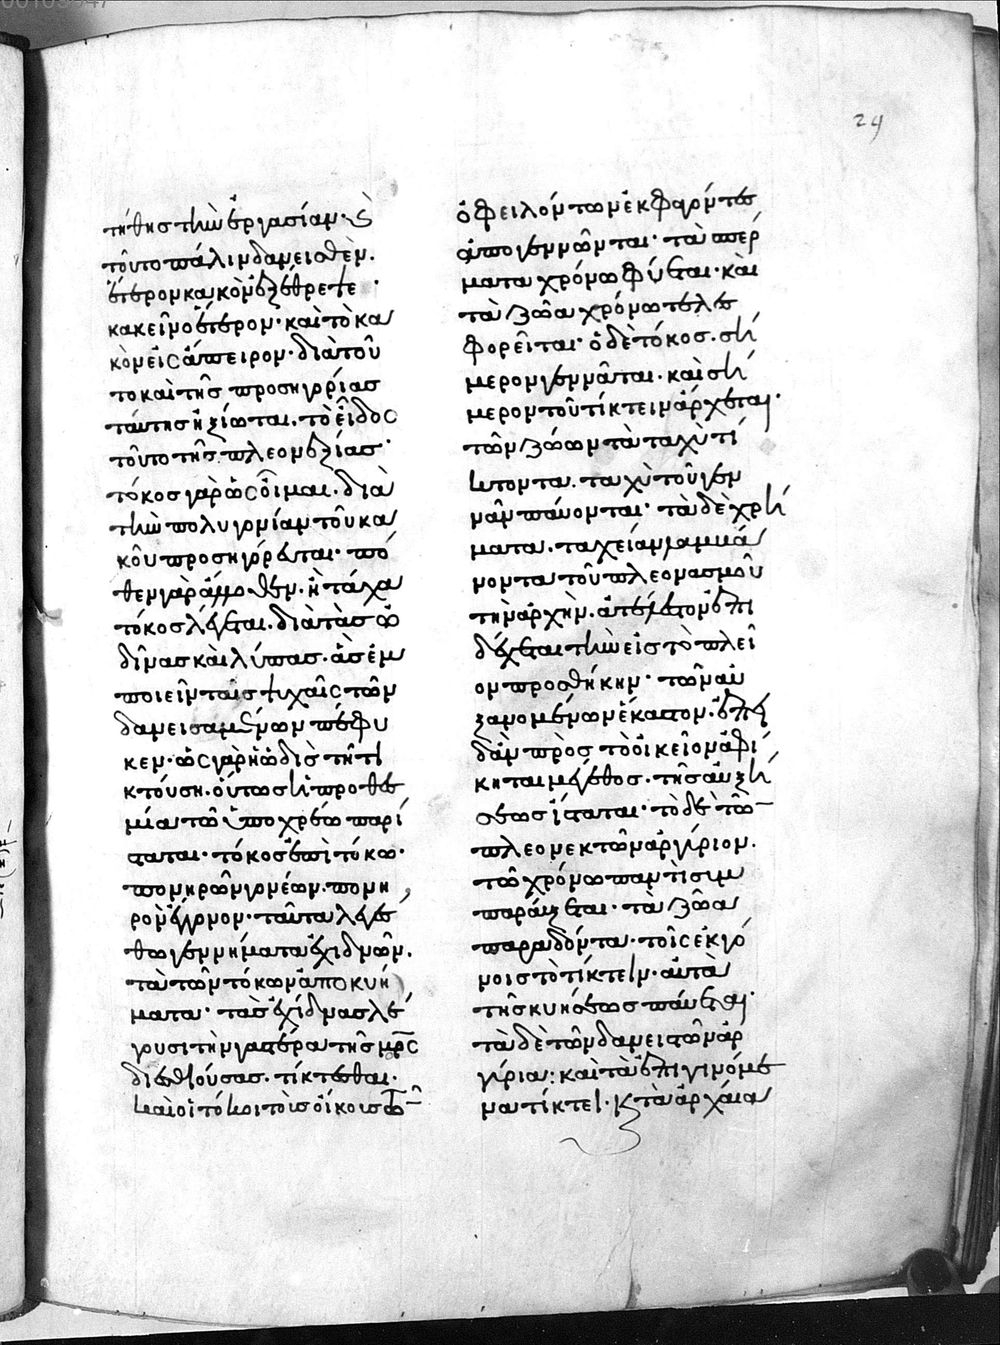 24
τήθης τὴν ἐργασίαν· ϗ
τοῦτο πάλιν δανεισθὲν.
ἕτερον κακὸν ἐξέθρεψε·
κακεῖνο ἕτερον· καὶ τὸ κα
κὸν εἰς ἄπειρον· διὰ τοῦ
το καὶ τῆς προσηγορίας
ταύτης ἠξίωται. τὸ εἶδος
τοῦτο τῆς πλεονεξίας·
τόκος γὰρ ὡς οἶμαι. διὰ
τὴν πολυγονίαν τοῦ κα
κοῦ προσηγόρευται· πό
θεν γὰρ ἄλλοθεν. ἢ τάχα
τόκος λέγεται. διὰ τὰς ὠ
δῖνας καὶ λύπας. ἃς ἐμ
ποιεῖν ταῖς ψυχαῖς τῶν
δανεισαμένων πέφυ
κεν· ὡς γὰρ ἡ ὠδὶς τῆ τι
κτούση. οὕτως ἡ προθε
μία τῶ ὑποχρέω παρί
σταται· τόκος ἐπὶ τόκω·
πονηρῶν γονέων. πονη
ρὸν ἔγγονον· ταῦτα λεγέ
θω γεννήματα ἐχιδνῶν.
τὰ τῶν τόκων ἀποκυή
ματα· τὰς ἐχίδνας λέ
γουσι τὴν γαστέρα τῆς μρ̅ς
διεσθιούσας. τίκτεσθαι·
καὶ οἱ τόκοι τοὺς οἴκους τῶν
ὀφειλόντων ἐκφαγόντες
ἀπογεννῶνται· τὰ σπέρ
ματα χρόνω φύεται· καὶ
τὰ ζῶα χρόνω τελες
φορεῖται· ὁ δὲ τόκος. σή
μερον γεννᾶται. καὶ σή
μερον τοῦ τίκτειν ἄρχεται·
τῶν ζώων τὰ ταχὺ τί
κτοντα. ταχὺ τοῦ γεν
νᾶν παύονται· τὰ δὲ χρή
ματα. ταχεῖαν λαμβά
νοντα τοῦ πλεονασμοῦ
τὴν ἀρχὴν. ἄπειρον ἐπι
δέχεται τὴν εἰς τὸ πλεῖ
ον προσθήκην· τῶν αὐ
ξανομένων ἕκαστον. ἐπει
δὰν πρὸς τὸ οἰκεῖον ἀφί
κηται μέγεθος. τῆς αὐξή
σεως ἵσταται· τὸ δὲ τῶν
πλεονεκτῶν ἀργύριον.
τῶ χρόνω παντὶ συμ
παραύξεται· τὰ ζῶα
παραδόντα· τοῖς ἐκγό
νοις τὸ τίκτειν· αὐτὰ
τῆς κυήσεως παύεται·
τὰ δὲ τῶν δανειστῶν ἀρ
γύρια: καὶ τὰ ἐπιγινόμε
να τίκτει· ϗ τὰ ἀρχαῖα